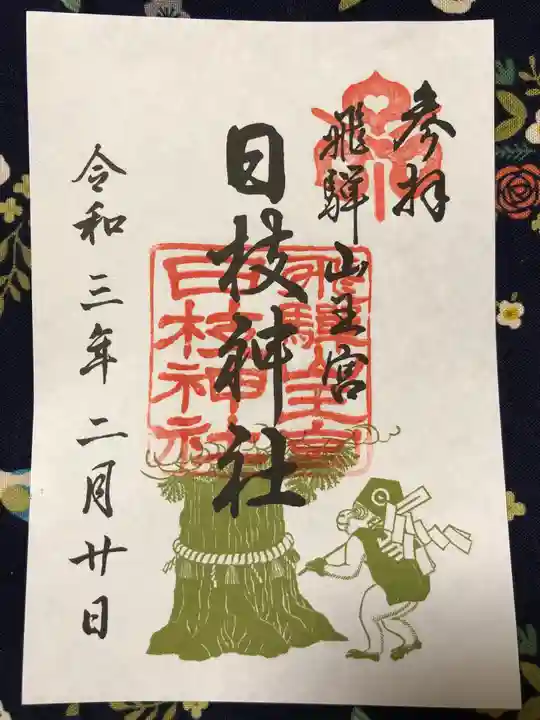 参拝
飛騨山王宮
日枝神社
飛騨山王宮
日枝神社
令和三年二月廿日